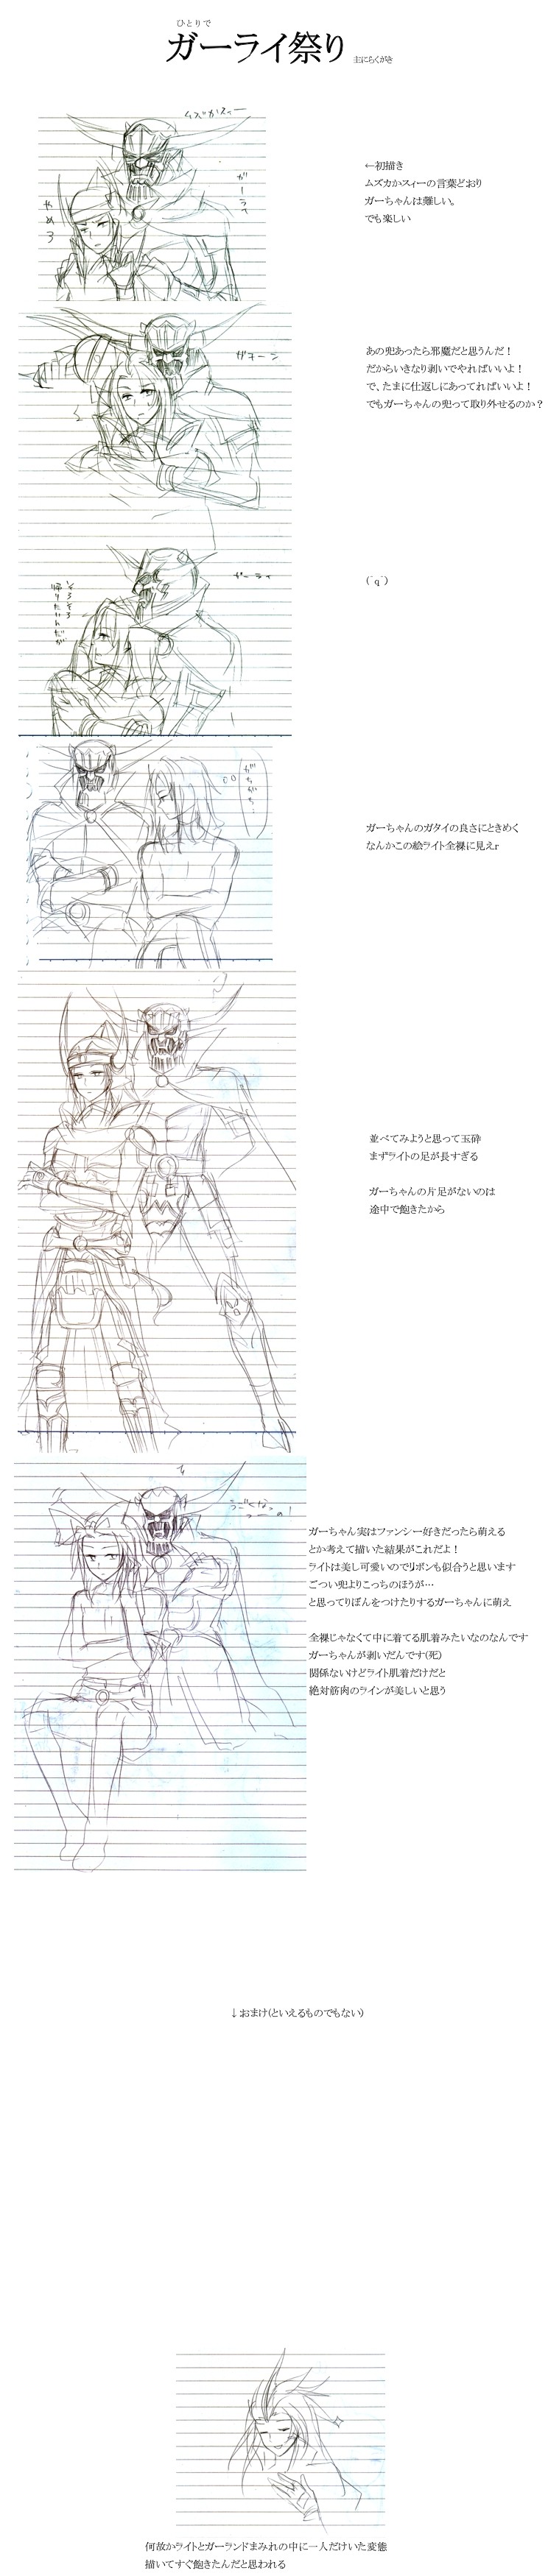 ひとりで
ガーライ祭り
主にらくがき
ムズかスィー
ガーライ
やめろ
←初描き
ムズカかスィーの言葉どおり
ガーちゃんは難しい。
でも楽しい
ガチーン
あの兜あったら邪魔だと思うんだ！
だからいきなり剥いでやればいいよ！
で、たまに仕返しにあってればいいよ！
でもガーちゃんの兜って取り外せるのか？
ガーライ
そろそろ
帰りたいんだが
(´q`)
ガーちゃんのガタイの良さにときめく
なんかこの絵ライト全裸に見えr
並べてみようと思って玉砕
まずライトの足が長すぎる
ガーちゃんの片足がないのは
途中で飽きたから
ガーちゃん実はファンシー好きだったら萌える
とか考えて描いた結果がこれだよ！
ライトは美し可愛いのでリボンも似合うと思います
ごつい兜よりこっちのほうが…
と思ってりぼんをつけたりするガーちゃんに萌え
全裸じゃなくて中に着てる肌着みたいなのなんです
ガーちゃんが剥いだんです(死)
関係ないけどライト肌着だけだと
絶対筋肉のラインが美しいと思う
↓おまけ(といえるものでもない)
何故かライトとガーランドまみれの中に一人だけいた変態
描いてすぐ飽きたんだと思われる